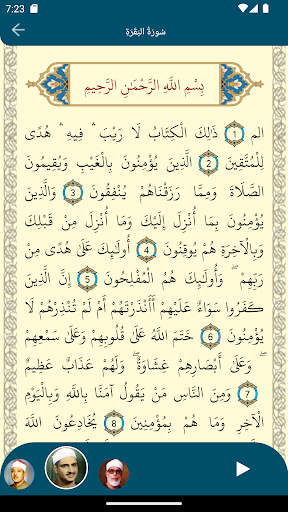 7:23
سُورَةُ البَقَرَةِ
بِسْمِ اللَّهِ الرَّحْمَٰنِ الرَّحِيمِ
الم ① ذَٰلِكَ الْكِتَابُ لَا رَيْبَ ۛ فِيهِ ۛ هُدًى
لِلْمُتَّقِينَ ② الَّذِينَ يُؤْمِنُونَ بِالْغَيْبِ وَيُقِيمُونَ
الصَّلَاةَ وَمِمَّا رَزَقْنَاهُمْ يُنْفِقُونَ ③ وَالَّذِينَ
يُؤْمِنُونَ بِمَا أُنْزِلَ إِلَيْكَ وَمَا أُنْزِلَ مِنْ قَبْلِكَ
وَبِالْآخِرَةِ هُمْ يُوقِنُونَ ④ أُولَٰئِكَ عَلَىٰ هُدًى مِنْ
رَبِّهِمْ ۖ وَأُولَٰئِكَ هُمُ الْمُفْلِحُونَ ⑤ إِنَّ الَّذِينَ
كَفَرُوا سَوَاءٌ عَلَيْهِمْ أَأَنْذَرْتَهُمْ أَمْ لَمْ تُنْذِرْهُمْ لَا
يُؤْمِنُونَ ⑥ خَتَمَ اللَّهُ عَلَىٰ قُلُوبِهِمْ وَعَلَىٰ سَمْعِهِمْ
ۖ وَعَلَىٰ أَبْصَارِهِمْ غِشَاوَةٌ ۖ وَلَهُمْ عَذَابٌ عَظِيمٌ
⑦ وَمِنَ النَّاسِ مَنْ يَقُولُ آمَنَّا بِاللَّهِ وَبِالْيَوْمِ
الْآخِرِ وَمَا هُمْ بِمُؤْمِنِينَ ⑧ يُخَادِعُونَ اللَّهَ